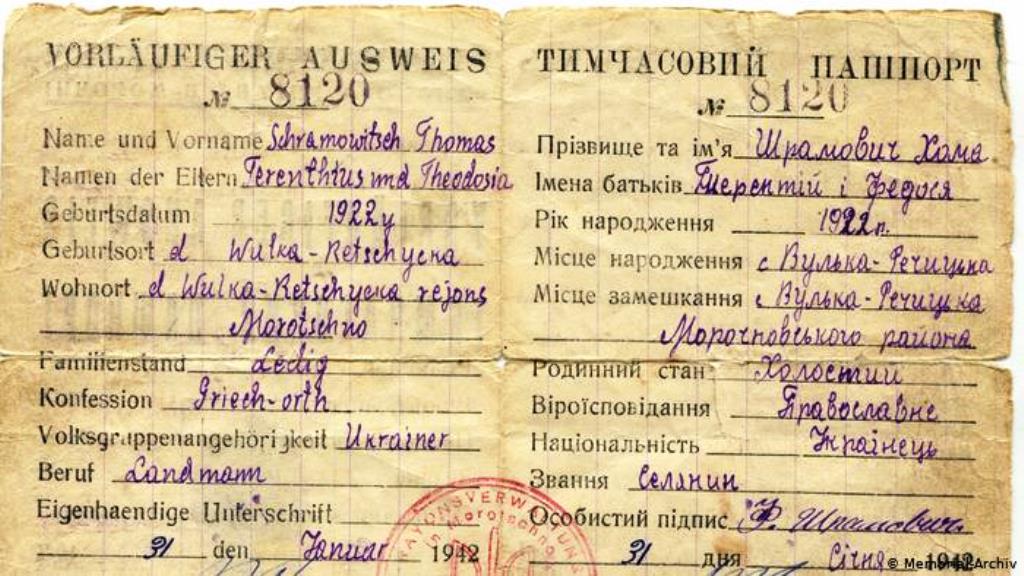 VORLÄUFIGER AUSWEIS
№ 8120
Name und Vorname Schramowitsch Thomas
Namen der Eltern Terenthius und Theodosia
Geburtsdatum 1922 y
Geburtsort d Wulka-Retschycka
Wohnort d Wulka-Retschycka rejons
Morotschno
Familienstand Ledig
Konfession Griech-orth
Volksgruppenangehörigkeit Ukrainer
Beruf Landmann
Eigenhaendige Unterschrift
31 den Januar 1942
RAYONSVERWALTUNG
Morotschno
ТИМЧАСОВИЙ ПАШПОРТ
№ 8120
Прізвище та ім'я Шрамович Хома
Імена батьків Терентій і Федося
Рік народження 1922 р.
Місце народження с Вулька-Речицька
Місце замешкання с Вулька-Речицька
Морочновського района
Родинний стан Холостий
Віроїсповідання Православне
Національність Українець
Звання Селянин
Особистий підпис Ф. Шрамович
31 дня Січня 1942
© Memorial-Archiv